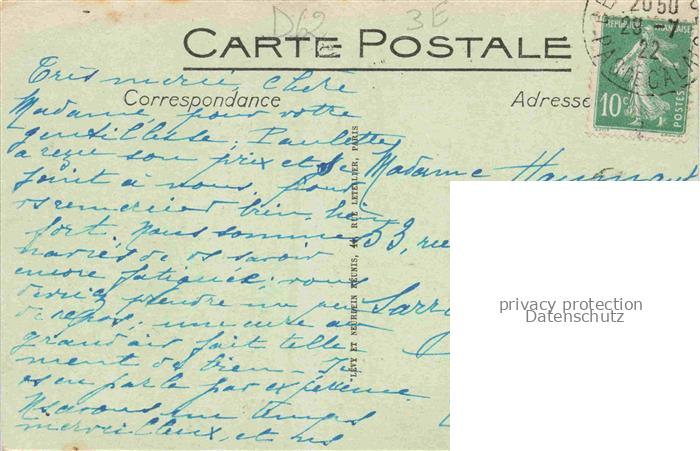 D62
3E
CARTE POSTALE
Correspondance
Adresse
20 50
29-7
22
PAS DE CALAIS
10c
POSTES
Très merci, chère
Madame, pour votre
gentillesse, Paulette
a reçu son prix et se
joint à nous pour
vs remercier bien, bien
fort. Nous sommes
navrés de vs savoir
encore fatiguée; vous
devriez prendre un peu
de repos; une cure au
grand air fait telle-
ment de bien - Je
vs en parle par expérience.
Ns avons un temps
merveilleux, et ns
Madame
53, rue
LÉVY ET NEURDEIN RÉUNIS, 44, RUE LETELLIER, PARIS
privacy protection
Datenschutz